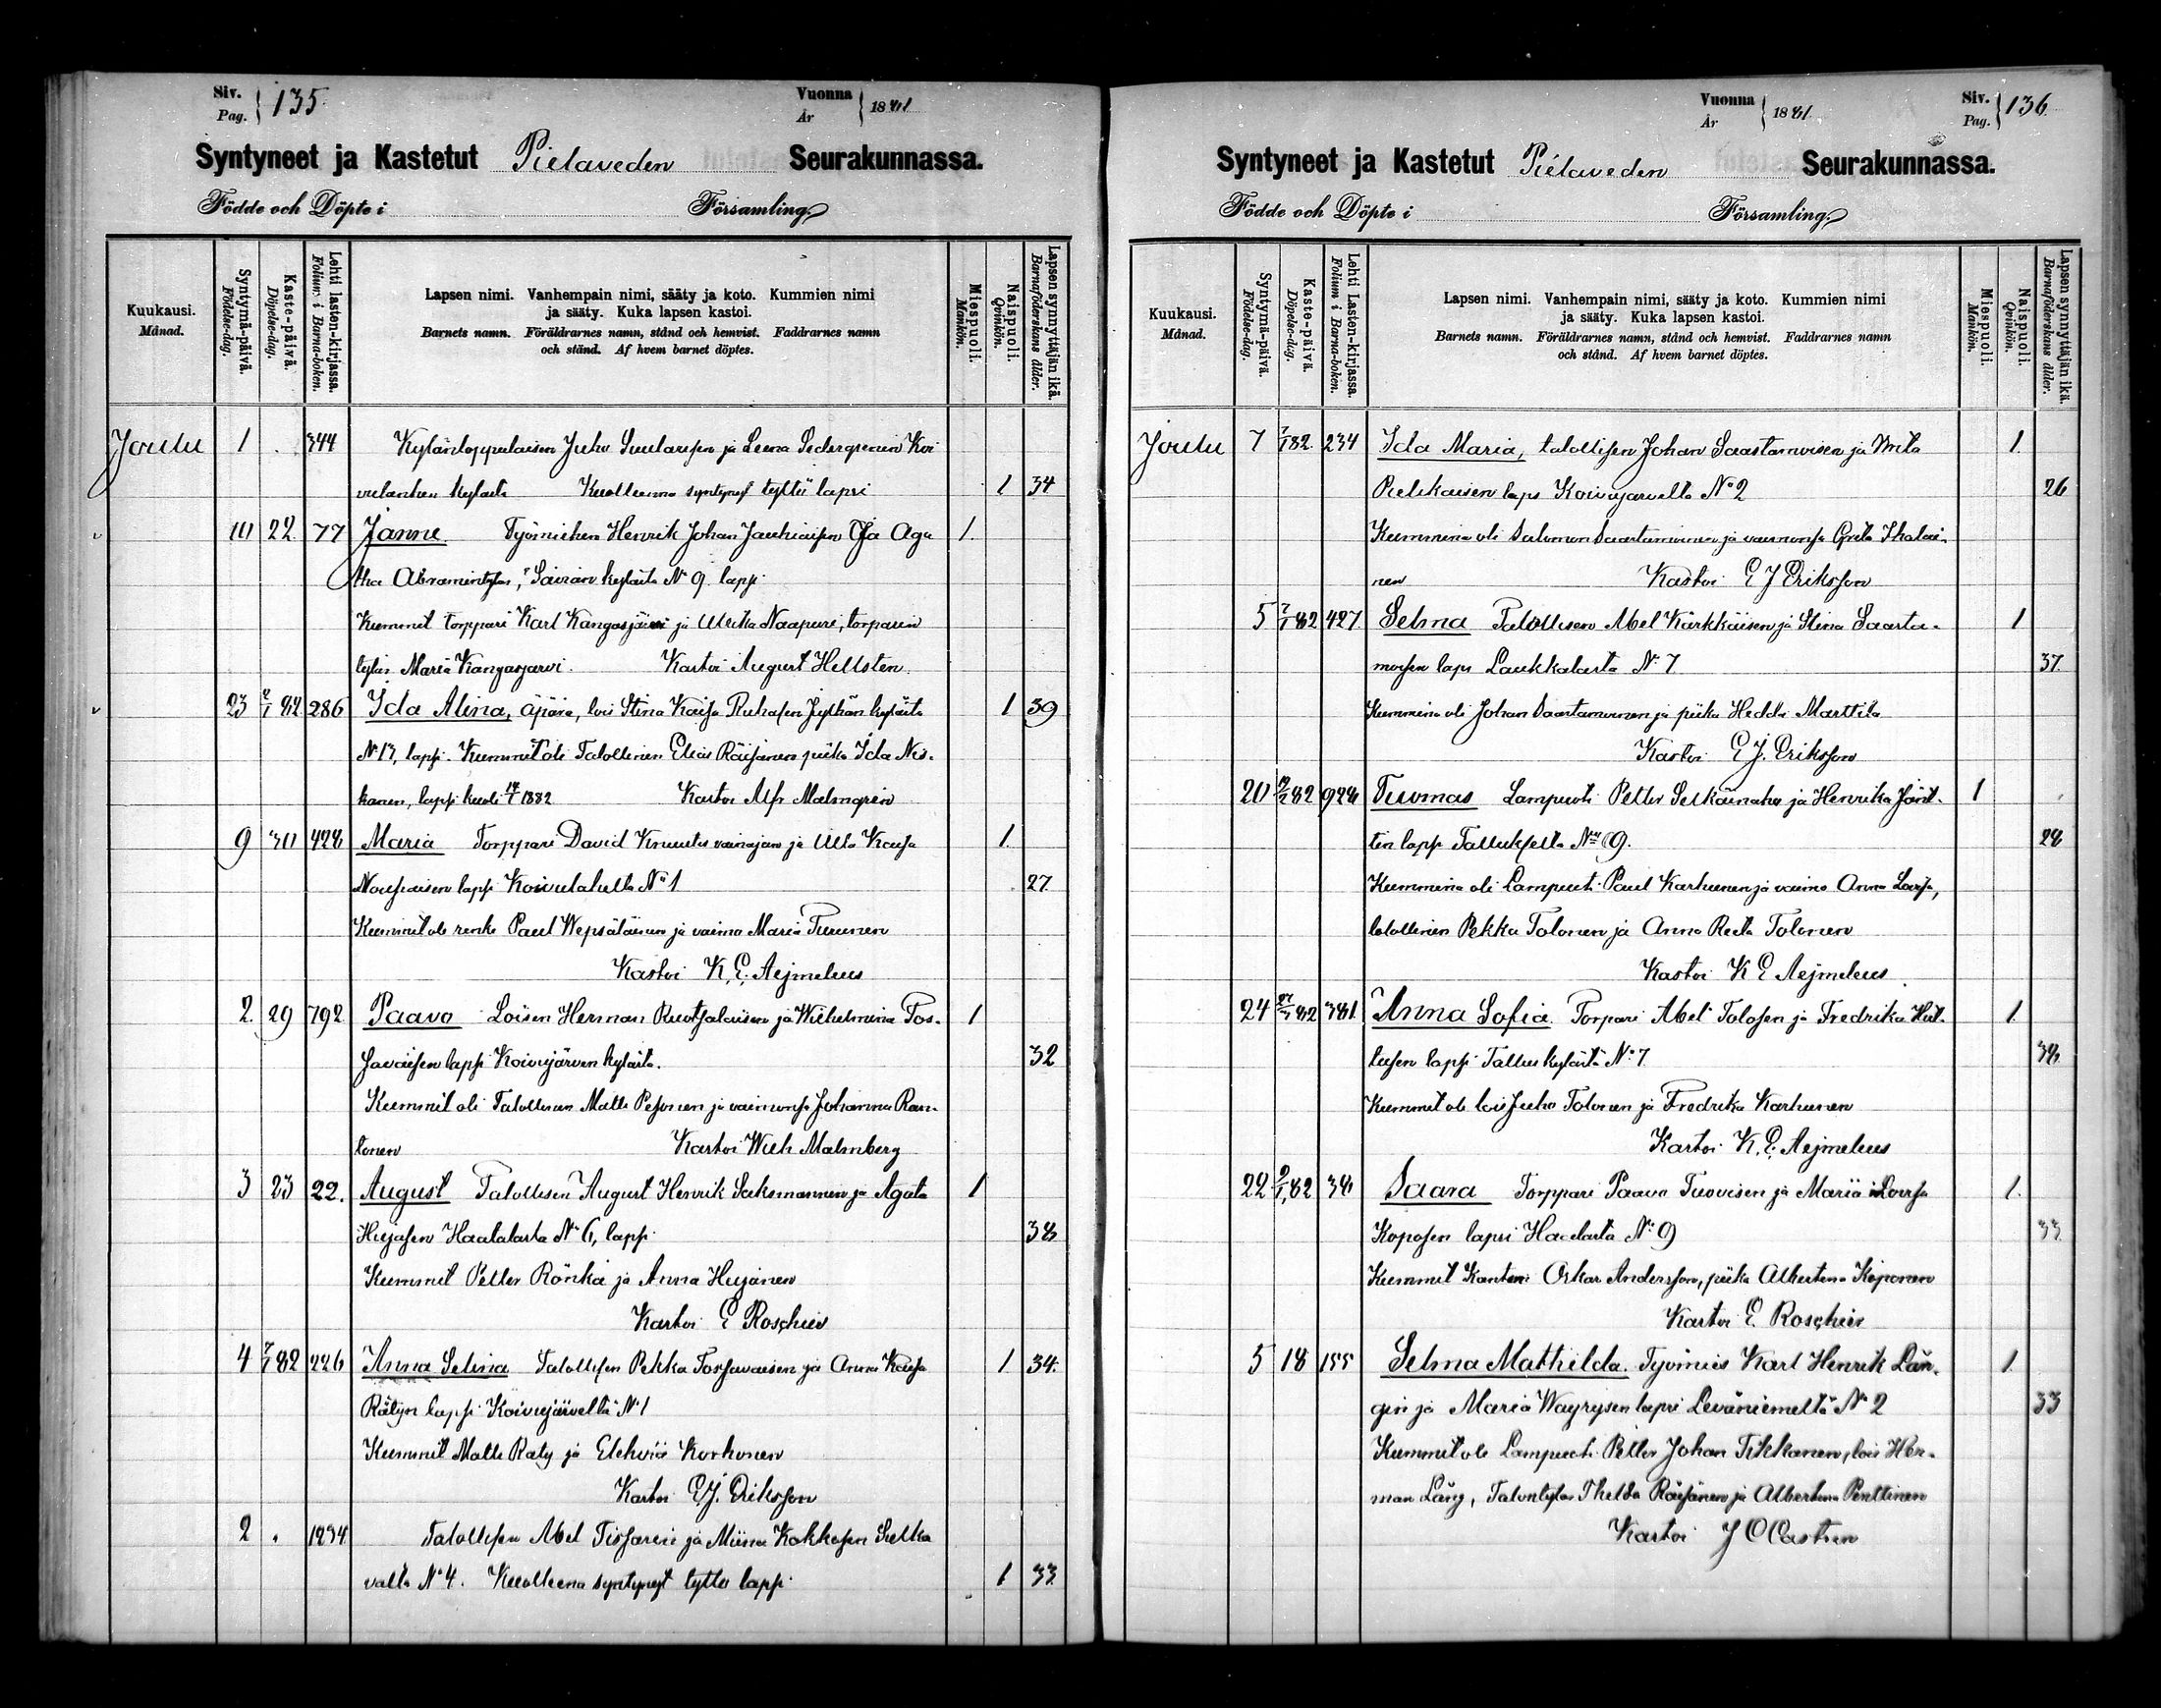 Siv. Pag. 135. Vuonna År 1881
Syntyneet ja Kastetut Pielaveden Seurakunnassa.
Födde och Döpte i Församling.
Kuukausi. Månad.
Syntymä-päivä. Födelse-dag.
Kaste-päivä. Döpelse-dag.
Lehti lasten-kirjassa. Folium i Barna-boken.
Lapsen nimi. Vanhempain nimi, sääty ja koto. Kummien nimi
ja sääty. Kuka lapsen kastoi.
Barnets namn. Föräldrarnes namn, stånd och hemvist. Faddrarnes namn
och stånd. Af hvem barnet döptes.
Miespuoli. Mankön.
Naispuoli. Qvinkön.
Lapsen synnyttäjän ikä. Barnaföderskans ålder.
Joulu 1 . 344 Juho ja Leena
kylästä Kuolleena syntynyt tyttö lapsi 1 34
10 22. 77 Janne. Työmiehen Henrik Johan Jauhiaisen ja Aga 1.
tha Abramintytär, Säviän kylästä No 9. laps.
Kummit torppari Karl Kangasjärvi ja Ulrika Naapuri, torparin
tytär Maria Kangasjarvi. Kastoi August Hellsten
23 2/1 82 286 Ida Alina, äpärä, lois Stina Kaisa Jylhän kylästä 1 39
No 13, lapsi. Kummit oli Talollinen Elias Räisänen piika Ida Nis-
kanen, lapsi kuoli 14/1 1882 Kastoi Alfr Malmgren
9 30 428 Maria Torppari David ja Ulla Kaisa 1.
lapsi Koivulahelta No 1 27.
Kummit oli renki Paul Wepsäläinen ja vaimo Maria Turunen
Kastoi K. E. Aejmeleus
2. 29 792 Paavo Loisen Herman Ruotsalaisen ja Wilhelmina Tos- 1
savaisen lapsi Koivujärven kylästä. 32
Kummit oli Talollinen Matti Pesonen ja vaimonsa Johanna Ran-
tonen Kastoi Wilh Malmberg
3 23 22. August Talollisen August Henrik Saksmannin ja Agata 1
Hujasen Haatalasta No 6, lapsi. 38
Kummit Petter Rönkä ja Anna Hujanen
Kastoi E Roschier
4 7/1 82 226 Anna Selina Talollisen Pekka Tossavaisen ja Anna Kaisa 1 34.
Rätyn lapsi Koivujärveltä No 1
Kummit Matti Räty ja Korhonen
Kastoi E J. Eriksson
2 . 1234 Talollisen Abel Tissarin ja Miina Kokkosen Sulka
valta No 4. Kuolleena syntynyt tyttö lapsi. 1 33.
Vuonna År 1881. Siv. Pag. 136.
Syntyneet ja Kastetut Pielaveden Seurakunnassa.
Födde och Döpte i Församling.
Kuukausi. Månad.
Syntymä-päivä. Födelse-dag.
Kaste-päivä. Döpelse-dag.
Lehti Lasten-kirjassa. Folium i Barna-boken.
Lapsen nimi. Vanhempain nimi, sääty ja koto. Kummien nimi
ja sääty. Kuka lapsen kastoi.
Barnets namn. Föräldrarnes namn, stånd och hemvist. Faddrarnes namn
och stånd. Af hvem barnet döptes.
Miespuoli. Mankön.
Naispuoli. Qvinkön.
Lapsen synnyttäjän ikä. Barnaföderskans ålder.
Joulu 7 7/1 82. 234 Ida Maria, talollisen Johan Saastamoisen ja 1.
Pielikaisen laps Koivujarvelta No 2 26
Kummina oli Salomon Saastamoinen ja vaimonsa Greta Ihalai-
nen Kastoi E J Eriksson
5 7/1 82 427. Selma Talollisen Abel Kärkkäisen ja Stina Saasta- 1
moisen laps Laukkalasta No 7 37.
Kummina oli Johan Saastamoinen ja piika Hedda Marttila
Kastoi E J. Eriksson
20 82 928 Tuomas Lampuoti Petter Selkäinaho ja Henrika Jänt- 1
tin lapsi Tallukselta No 9. 28
Kummina oli Lampuoti Paul Karhunen ja vaimo Anna Loviisa,
talollinen Pekka Tolonen ja Anna Reeta Tolonen
Kastoi K E Aejmeleus
24 82 381. Anna Sofia. Torpari Abel Tolosen ja Fredrika Hut- 1.
tusen lapsi Tallus kylästä No 7. 38
Kummit oli lois Juho Tolonen ja Fredrika Karhunen
Kastoi K. E. Aejmeleus
22 9/1 82 38 Saara Torppari Paavo Tuovisen ja Maria Lovisa 1.
Koposen lapsi Haalasta No 9 33
Kummit Kantori Oskar Andersson, piika Albertina Koponen
Kastoi E. Roschier
5 18 155 Selma Mathilda. Tyomies Karl Henrik Län- 1.
gin ja Maria Wayrysen lapsi Leväniemeltä No 2 33
Kummit oli Lampuoti Petter Johan Tikkanen, lois Her-
man Läng, Talontytär Thilda Räisänen ja Albertina Penttinen
Kastoi J O Castren